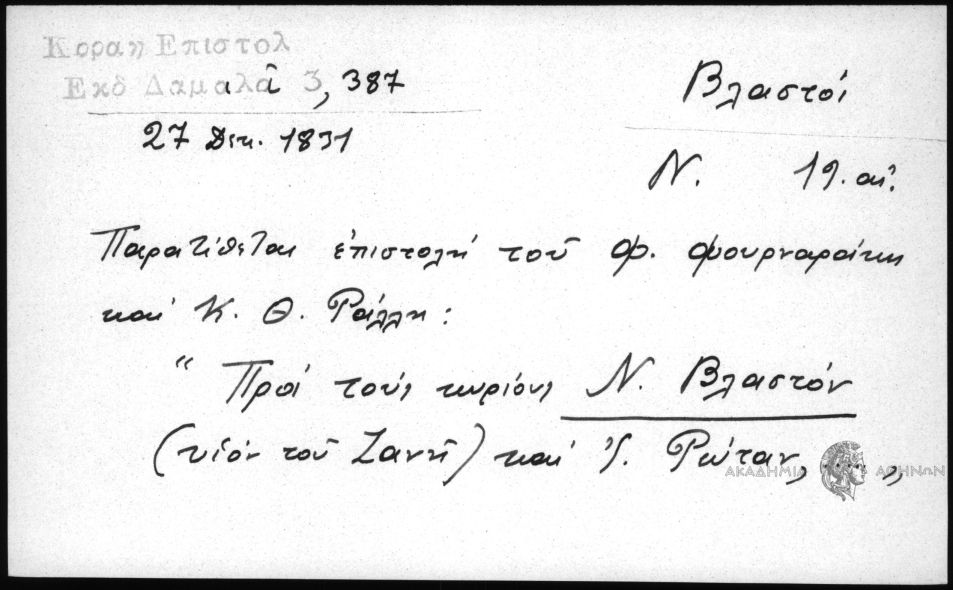 Κοραη Επιστολ
Εκδ Δαμαλᾶ 3, 387
27 Δεκ. 1831
Βλαστοί
Ν. 19. αἰ.
Παρατίθεται ἐπιστολή τοῦ Φ. Φουρναράκη
καί Κ. Θ. Ράλλη:
" Πρός τούς κυρίους Ν. Βλαστόν
(υἱόν τοῦ Ζαννῆ) καί Ἰ. Ρώταν, ...."
ΑΚΑΔΗΜΙΑ ΑΘΗΝΩΝ